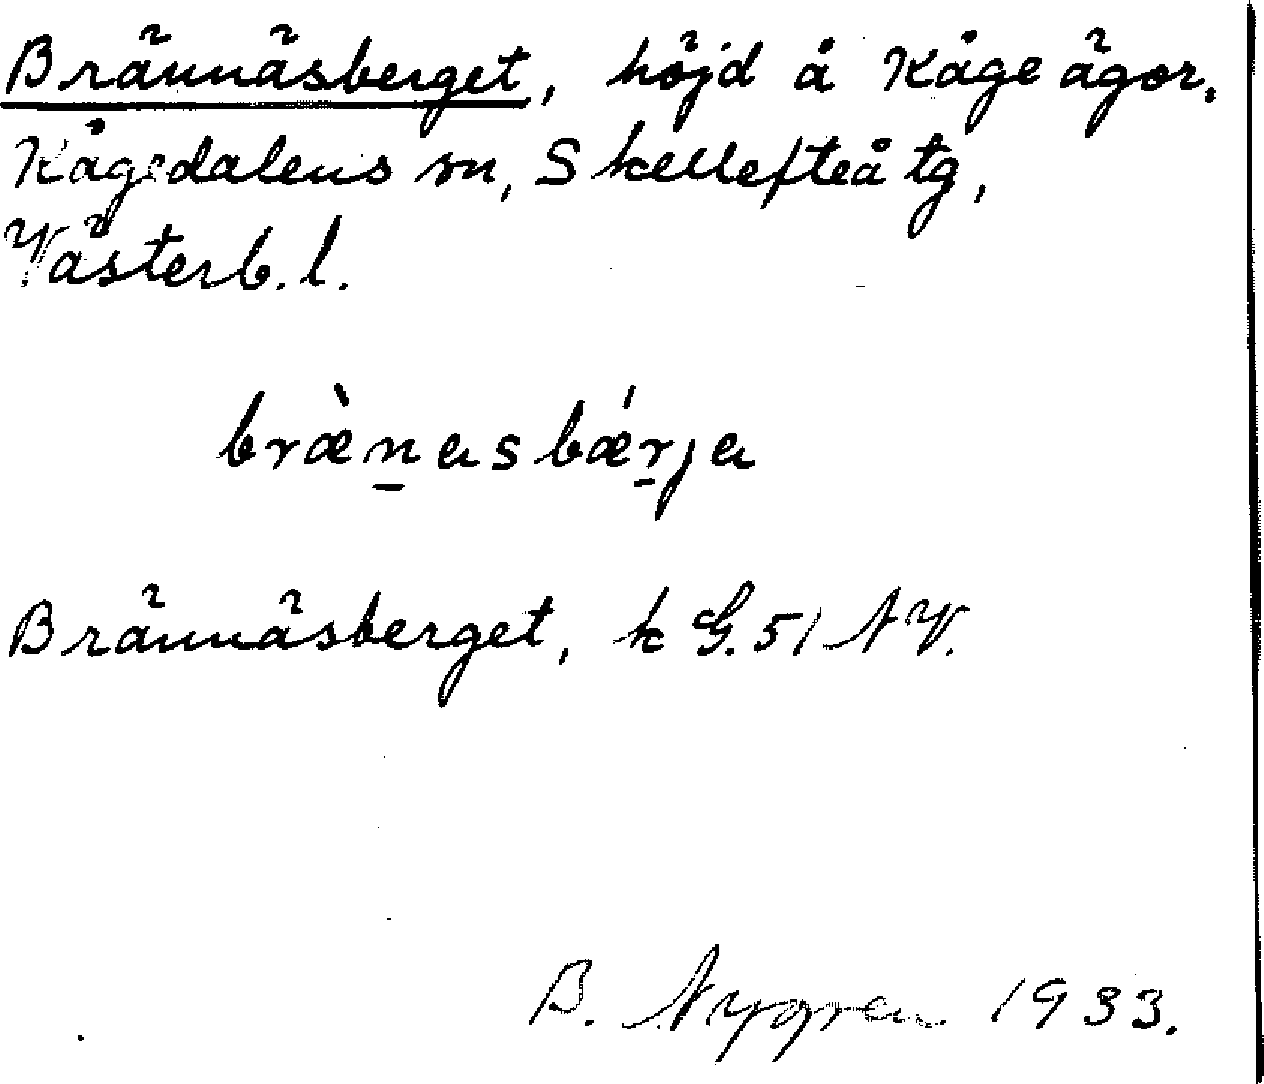 Brännäsberget, höjd å Kåge ägor,
Kågedalens sn, Skellefteå tg,
Västerb. l.
bræ̀n̲asbǽr̲ja
Brännäsberget, k G. 51 NV.
B. Nygren 1933.